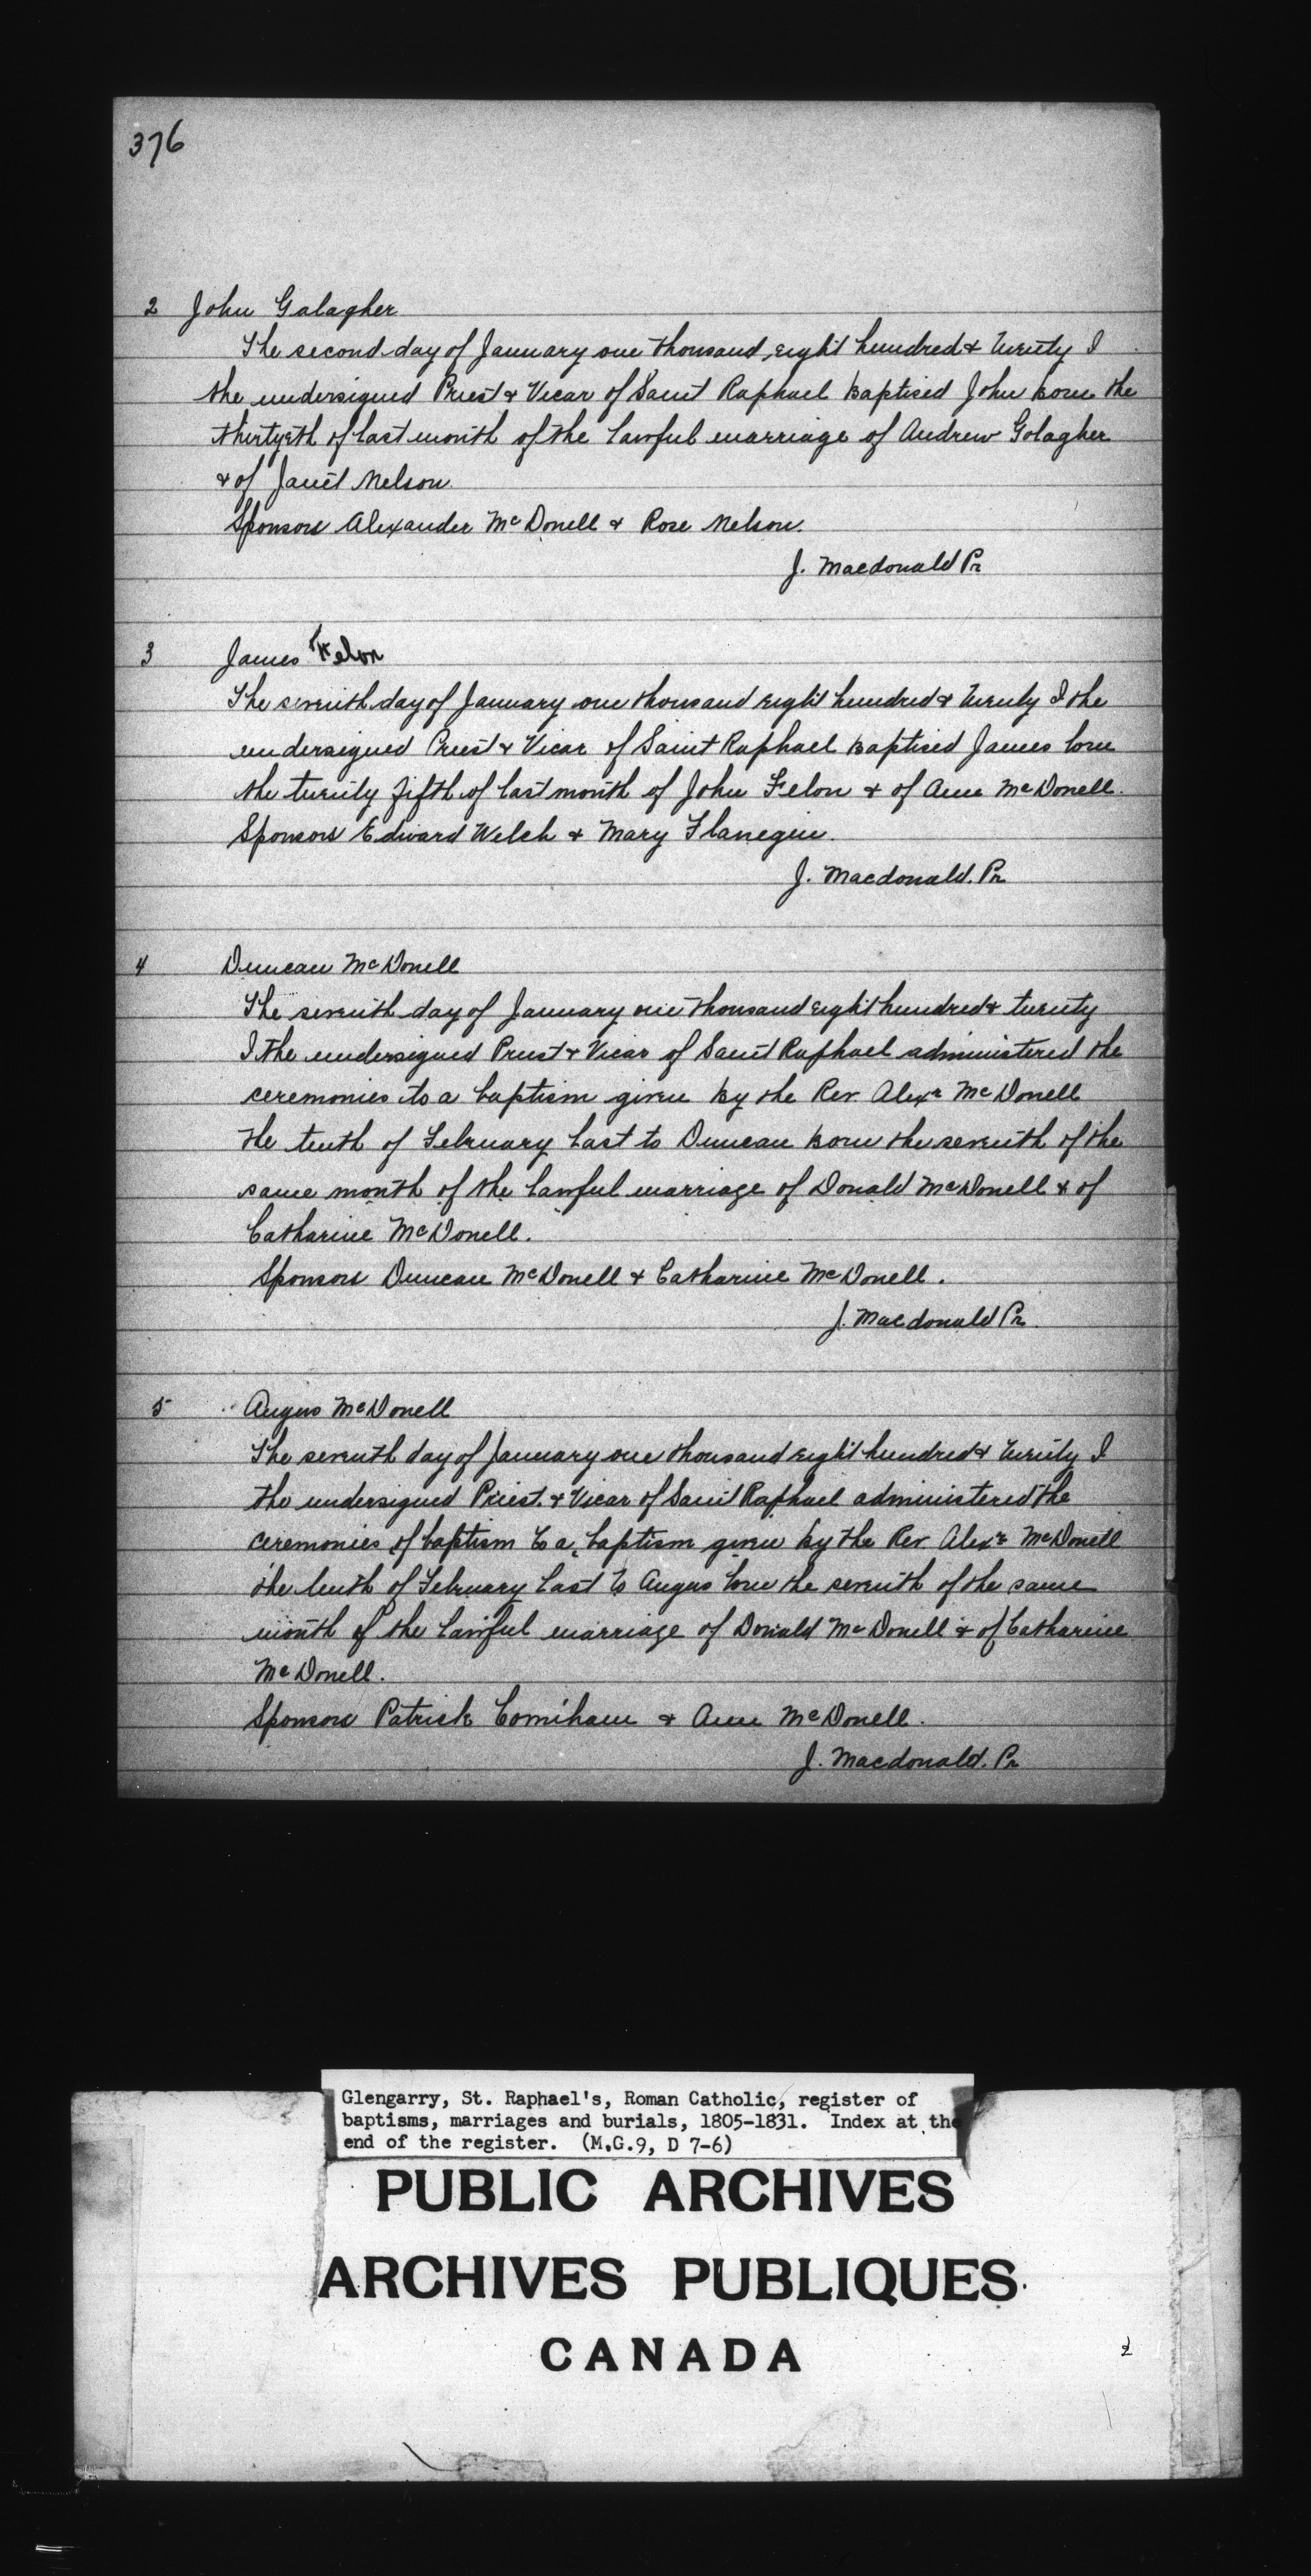 376
2 John Galagher
The second day of January one thousand eight hundred & twenty I
the undersigned Priest & Vicar of Saint Raphael baptised John born the
thirtyeth of last month of the lawful marriage of Andrew Golagher
& of Janet Nelson.
Sponsors Alexander McDonell & Rose Nelson.
J. Macdonald Pr
3 James Felon
The seventh day of January one thousand eight hundred & twenty I the
undersigned Priest & Vicar of Saint Raphael baptised James born
the twenty fifth of last month of John Felon & of Ann McDonell.
Sponsors Edward Welch & Mary Flanegin.
J. Macdonald. Pr
4 Duncan McDonell
The seventh day of January one thousand eight hundred & twenty
I the undersigned Priest & Vicar of Saint Raphael administered the
ceremonies to a baptism given by the Rev. Alexr McDonell
the tenth of February last to Duncan born the seventh of the
same month of the lawful marriage of Donald McDonell & of
Catharine McDonell.
Sponsors Duncan McDonell & Catharine McDonell.
J. Macdonald Pr.
5 Angus McDonell
The seventh day of January one thousand eight hundred & twenty I
the undersigned Priest. & Vicar of Saint Raphael administered the
ceremonies of baptism to a baptism given by the Rev. Alexr McDonell
the tenth of February last to Angus born the seventh of the same
month of the lawful marriage of Donald McDonell & of Catharine
McDonell.
Sponsors Patrick & Ann McDonell.
J. Macdonald. Pr
Glengarry, St. Raphael's, Roman Catholic, register of
baptisms, marriages and burials, 1805-1831. Index at the
end of the register. (M.G.9, D 7-6)
PUBLIC ARCHIVES
ARCHIVES PUBLIQUES
CANADA
2